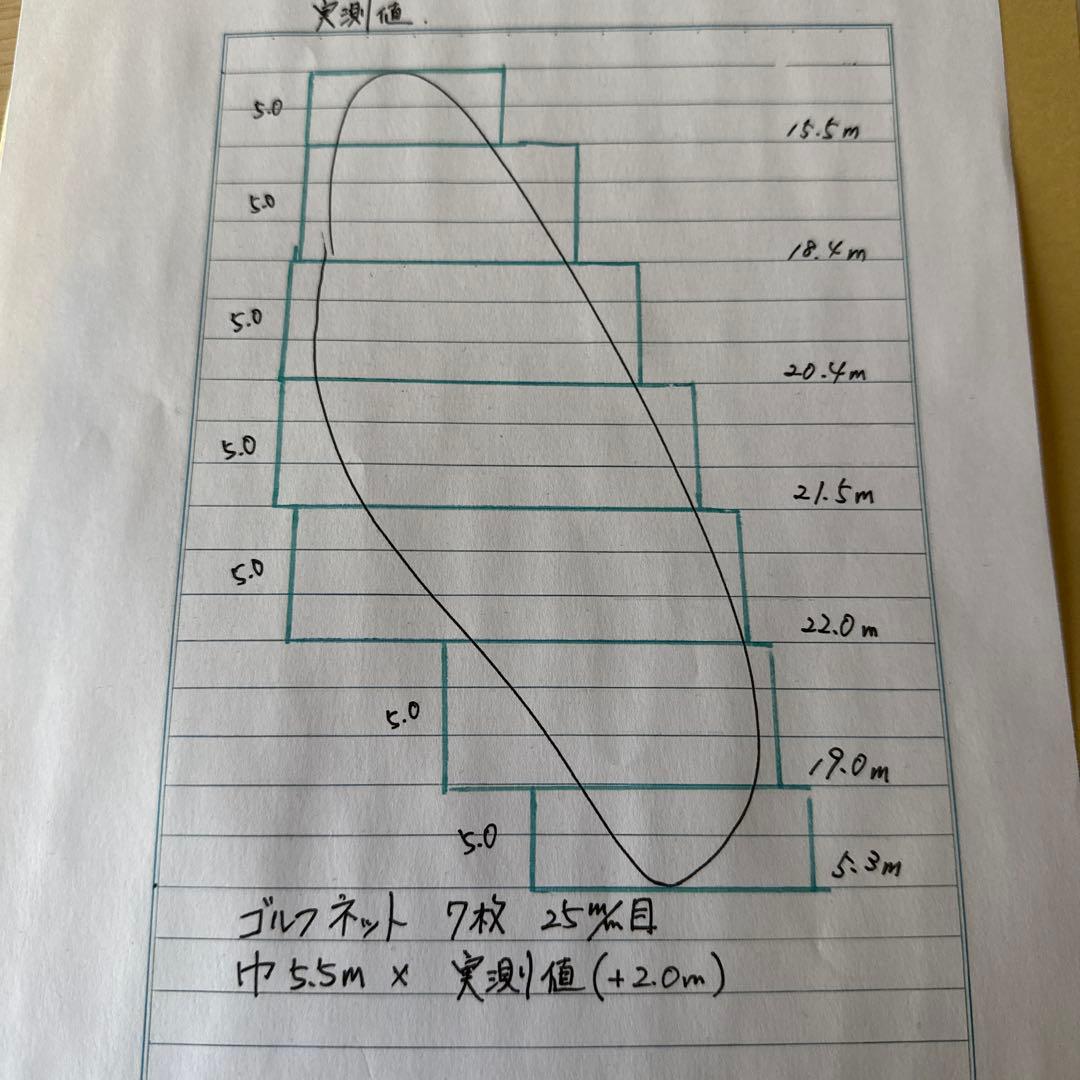 実測値.
5.0
15.5m
5.0
18.4m
5.0
20.4m
5.0
21.5m
5.0
22.0m
5.0
19.0m
5.0
5.3m
ゴルフネット 7枚 25m/m目
巾5.5m × 実測値(+2.0m)